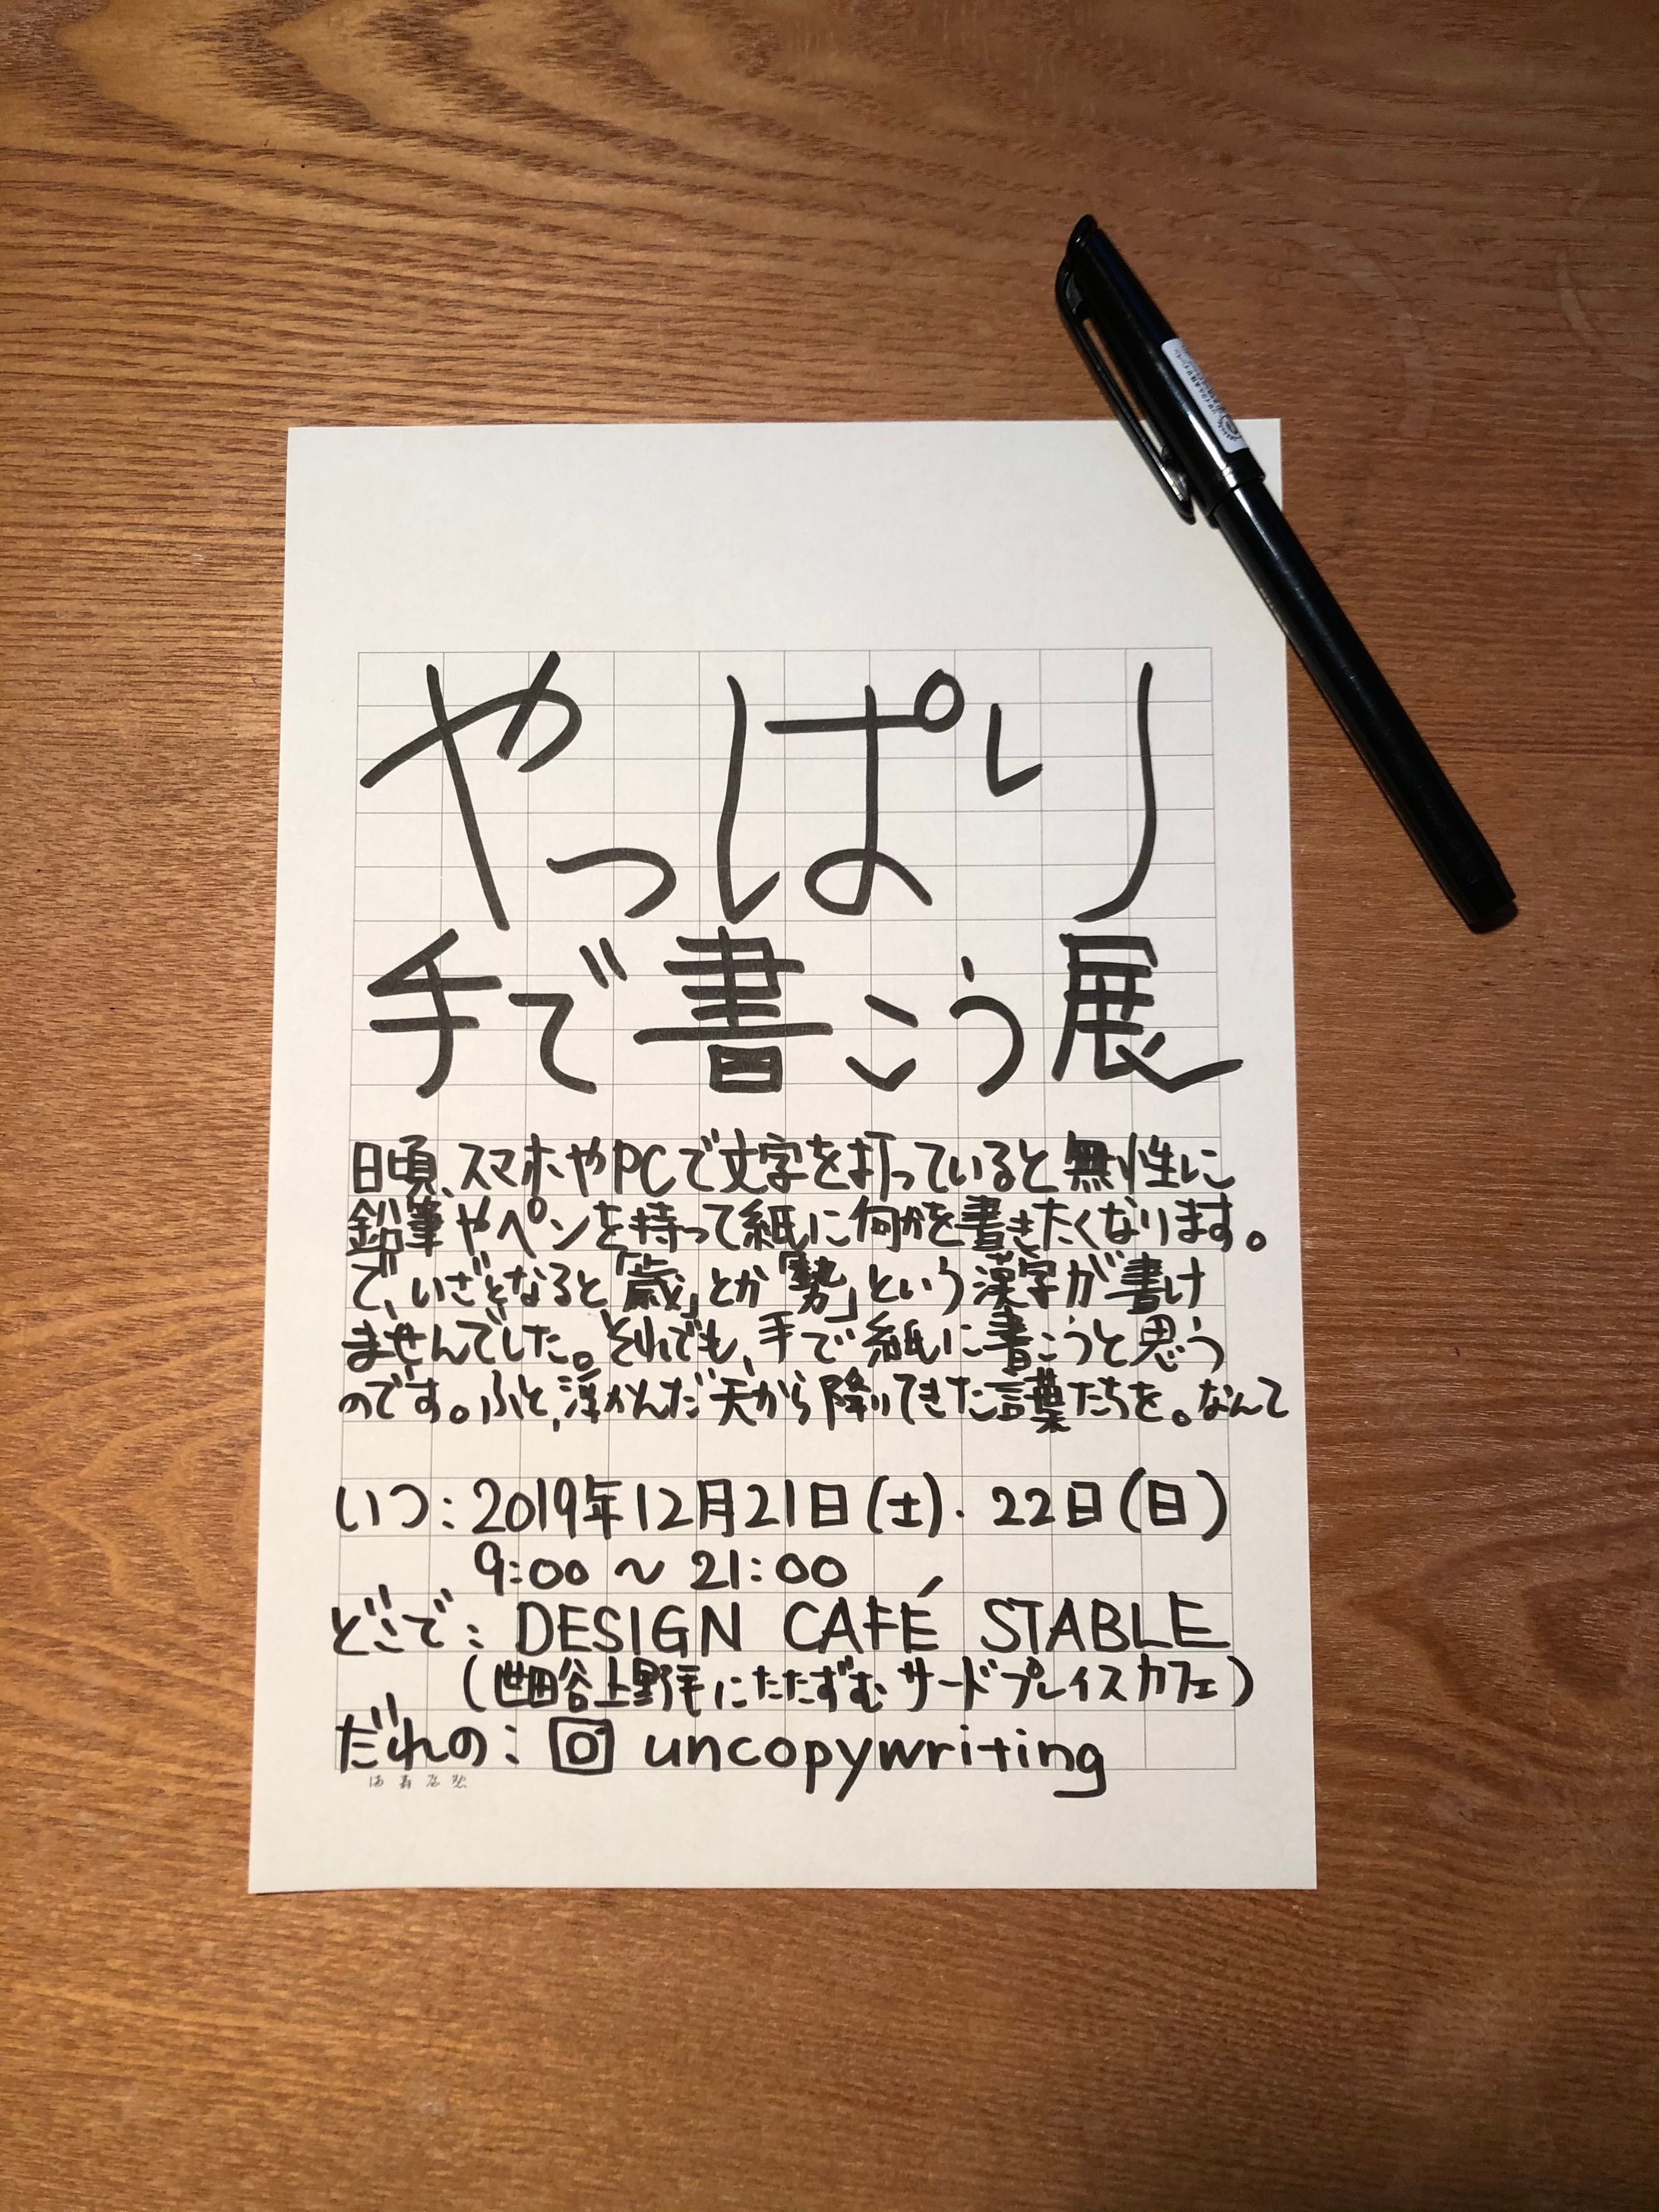 やっぱり
手で書こう展
日頃、スマホやPCで文字を打っていると無性に
鉛筆やペンを持って紙に何かを書きたくなります。
で、いざとなると「歳」とか「勢」という漢字が書け
ませんでした。それでも、手で紙に書こうと思う
のです。ふと、浮かんだ天から降りてきた言葉たちを。なんて
いつ:2019年12月21日(土)・22日(日)
9:00〜21:00
どこで:DESIGN CAFÉ STABLE
(世田谷上野毛にたたずむサードプレイスカフェ)
だれの: uncopywriting